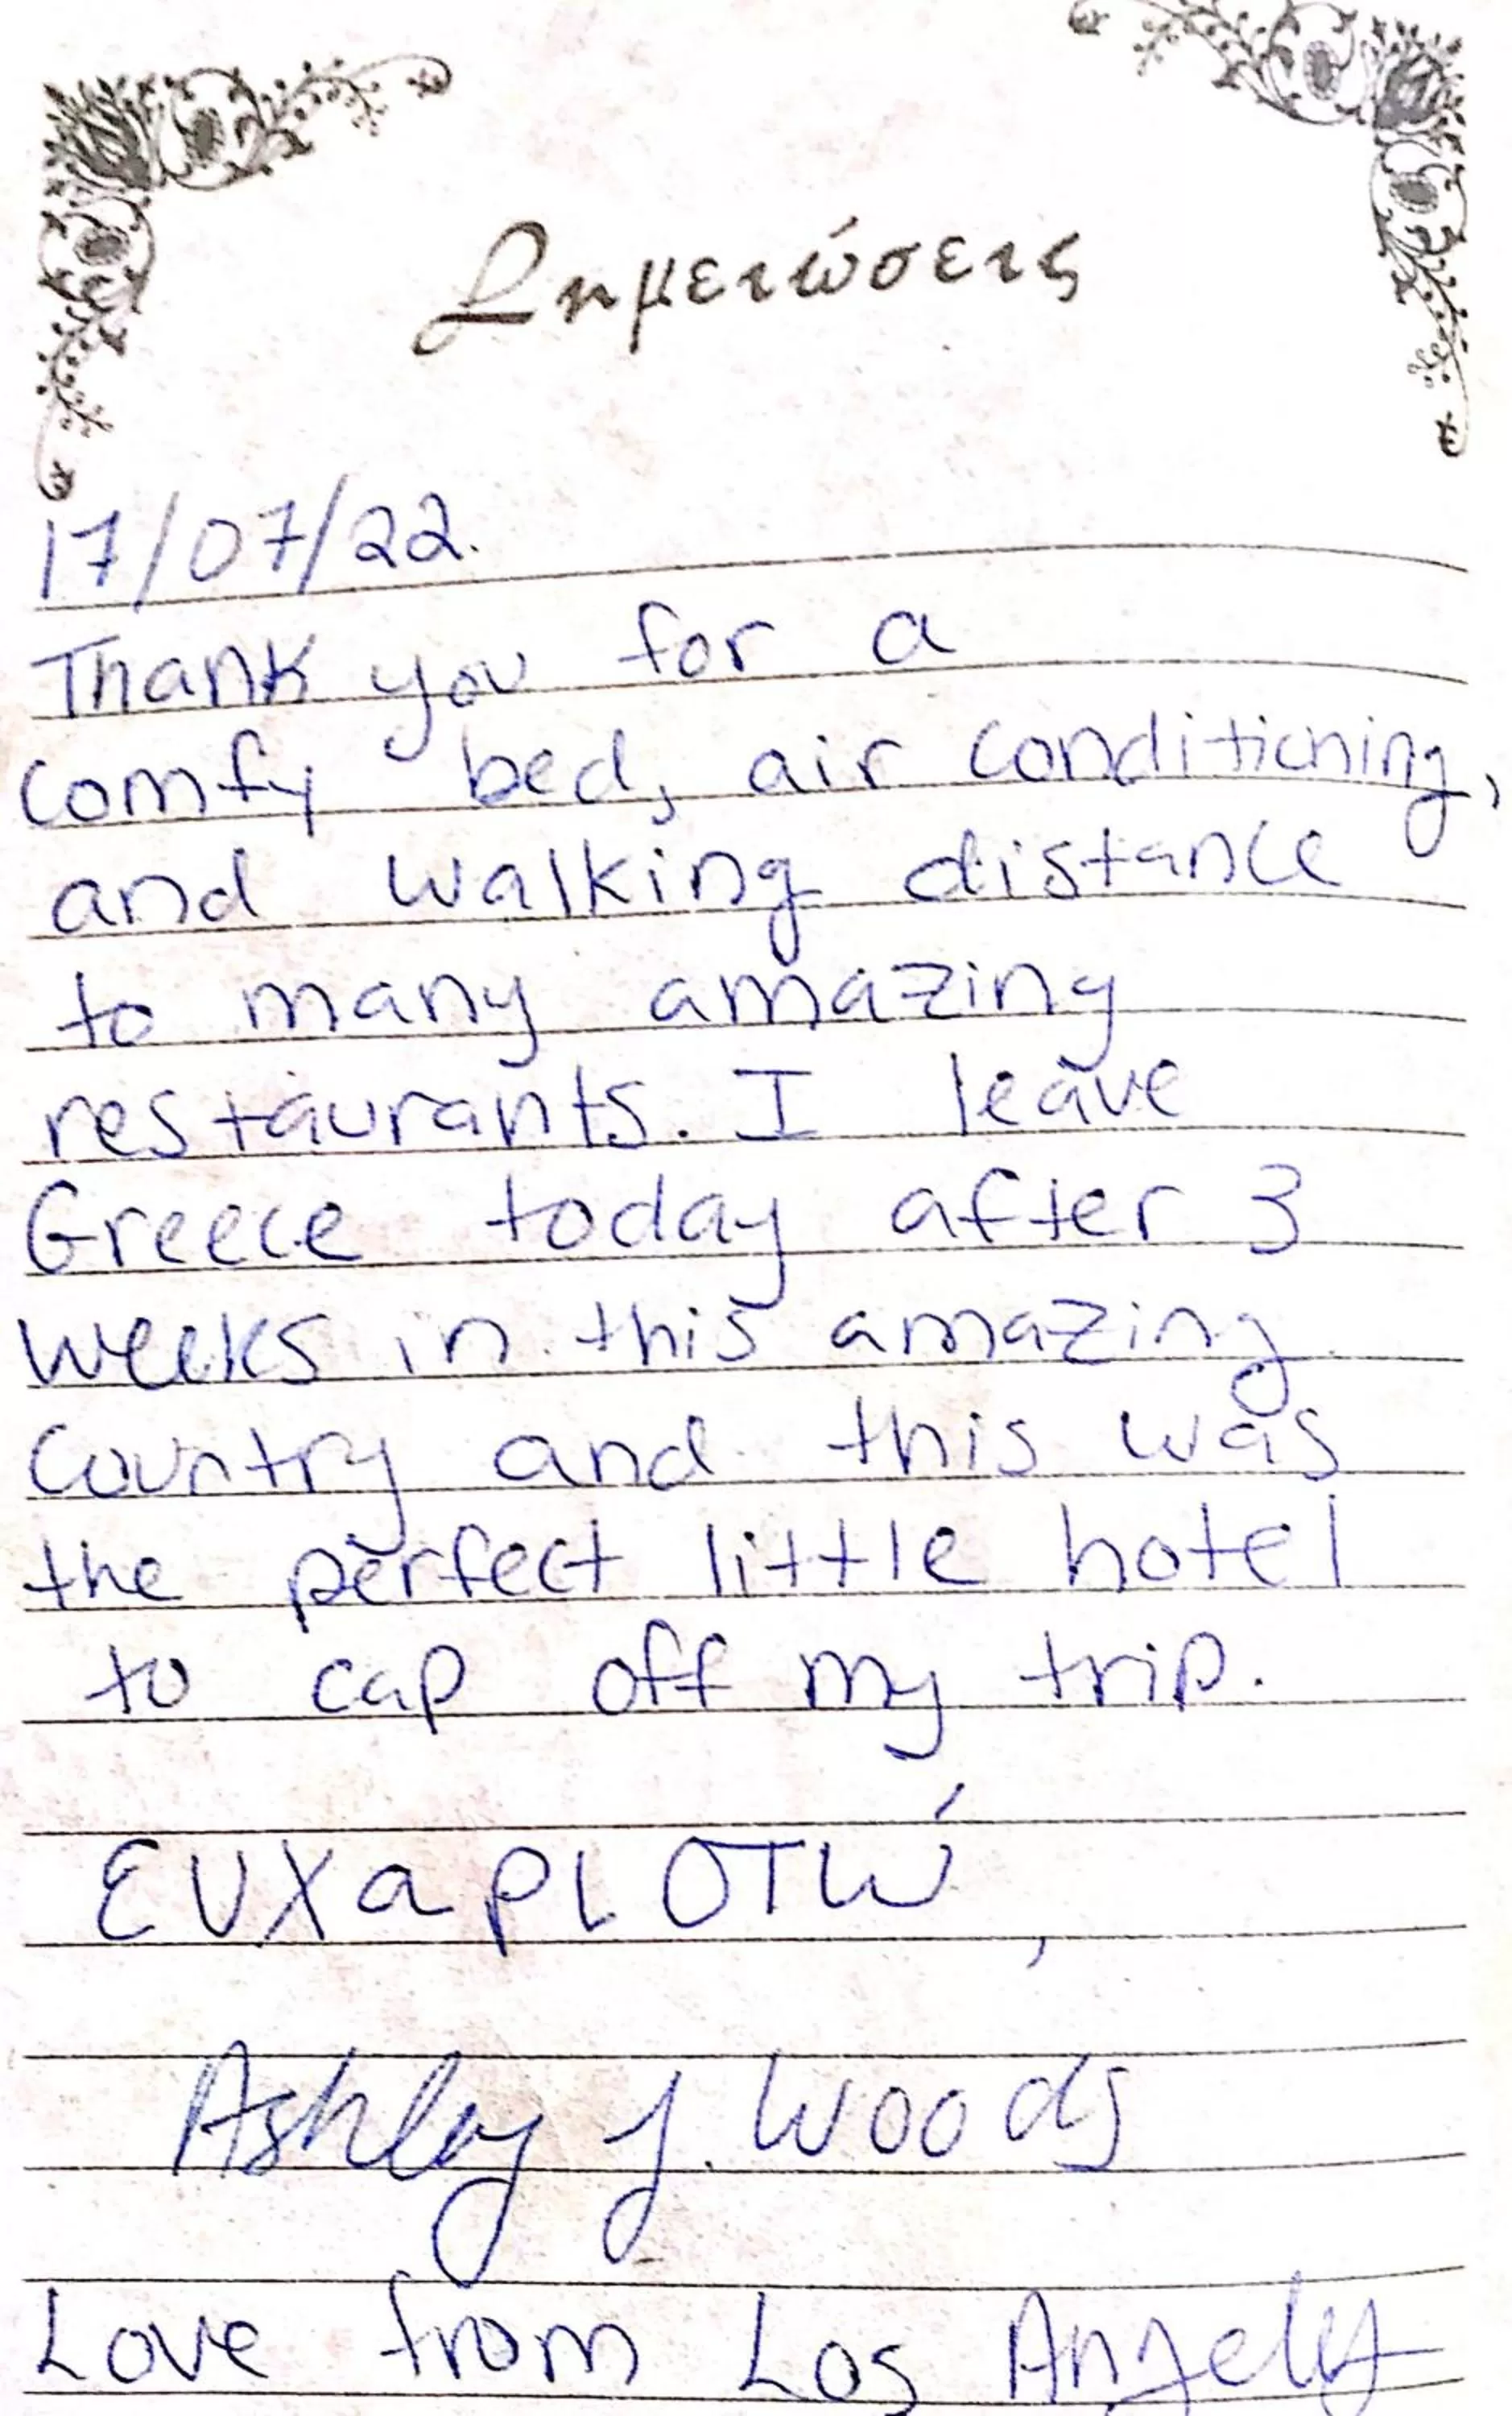 Σημειώσεις
17/07/22.
Thank you for a
comfy bed, air conditioning,
and walking distance
to many amazing
restaurants. I leave
Greece today after 3
weeks in this amazing
Country and this was
the perfect little hotel
to cap off my trip.
ευχαριστώ,
Ashley J. Woods
Love from Los Angeles